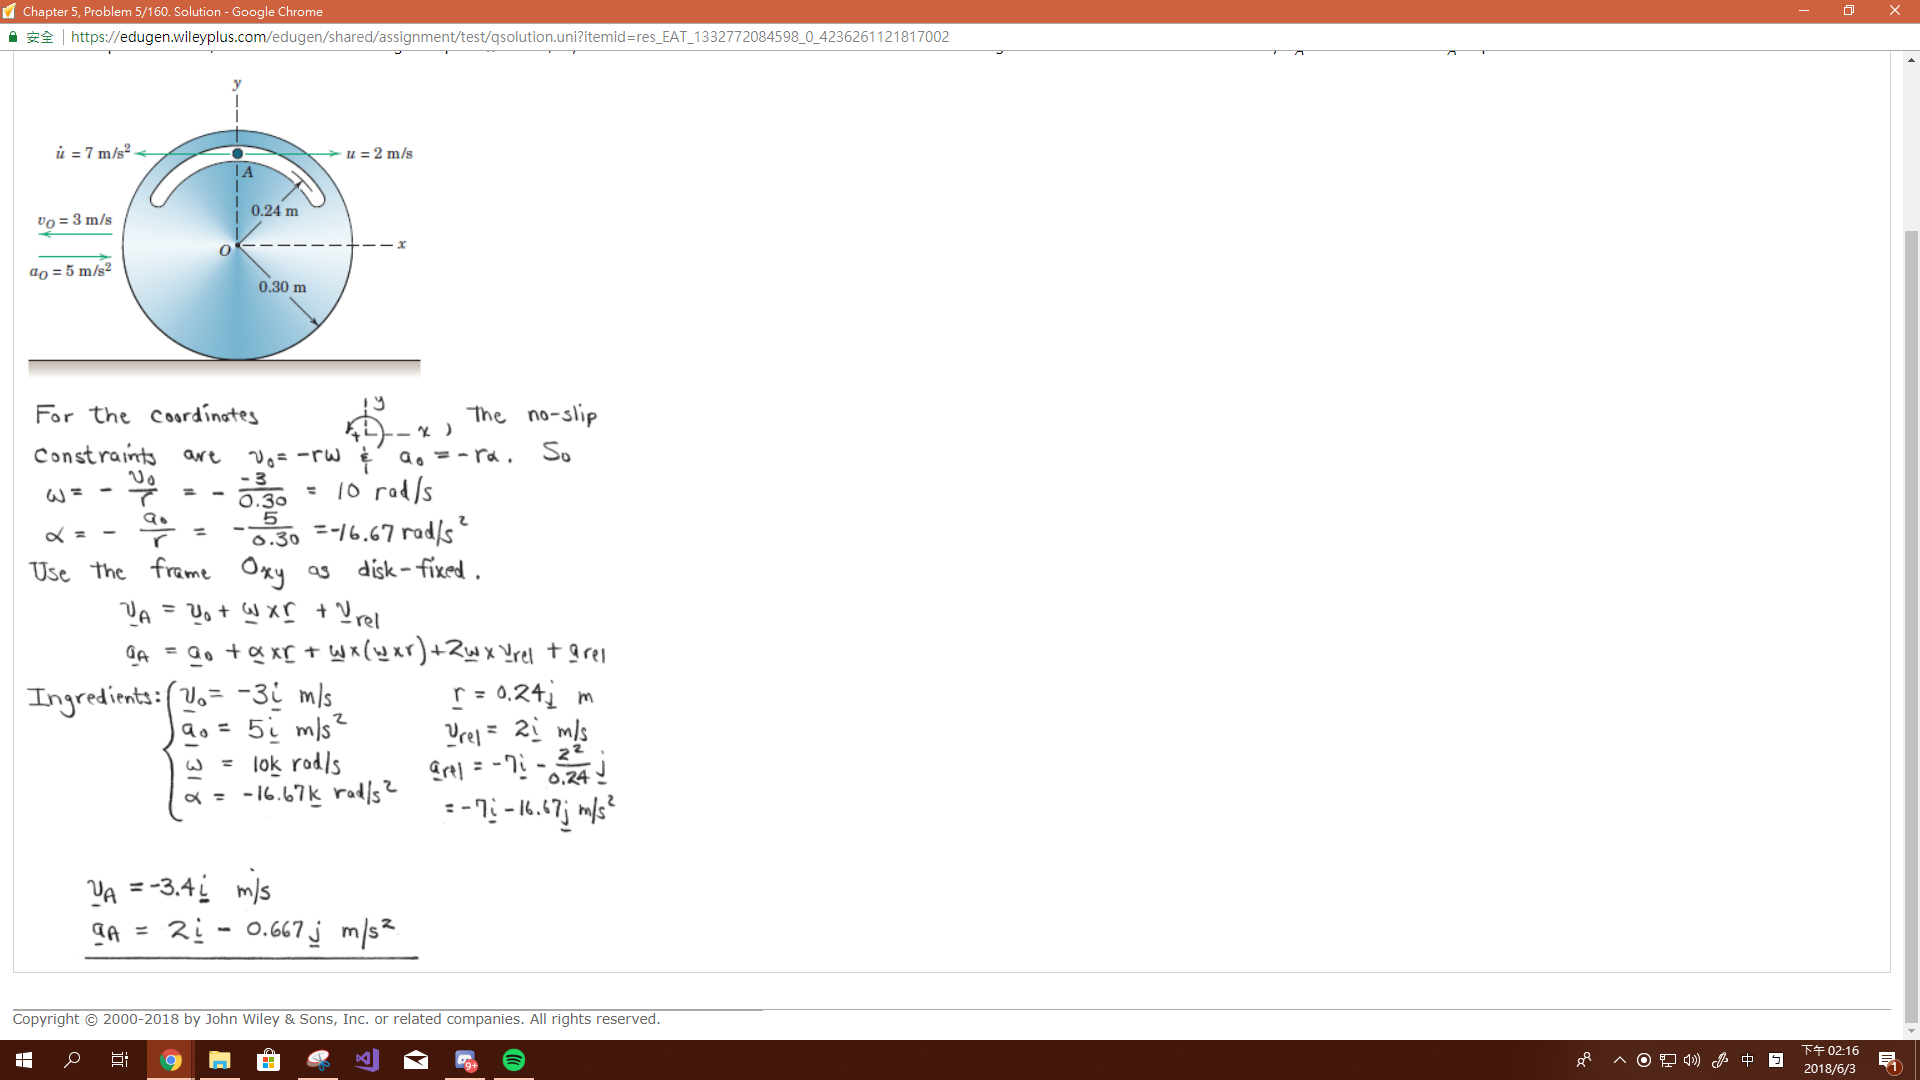 Chapter 5, Problem 5/160. Solution - Google Chrome
安全 https://edugen.wileyplus.com/edugen/shared/assignment/test/qsolution.uni?itemid=res_EAT_1332772084598_0_4236261121817002
y
u̇ = 7 m/s²
u = 2 m/s
A
0.24 m
v_O = 3 m/s
O
x
a_O = 5 m/s²
0.30 m
For the coordinates y + x , The no-slip
constraints are v₀ = -rω & a₀ = -rα. So
ω = - v₀/r = - -3/0.30 = 10 rad/s
α = - a₀/r = - 5/0.30 = -16.67 rad/s²
Use the frame Oxy as disk-fixed.
v_A = v₀ + ω×r + v_rel
a_A = a₀ + α×r + ω×(ω×r) + 2ω×v_rel + a_rel
Ingredients: { v₀ = -3i m/s r = 0.24j m
a₀ = 5i m/s² v_rel = 2i m/s
ω = 10k rad/s a_rel = -7i - 2²/0.24 j
α = -16.67k rad/s² = -7i - 16.67j m/s²
v_A = -3.4i m/s
a_A = 2i - 0.667j m/s²
Copyright © 2000-2018 by John Wiley & Sons, Inc. or related companies. All rights reserved.
9+
中
下午 02:16
2018/6/3
1